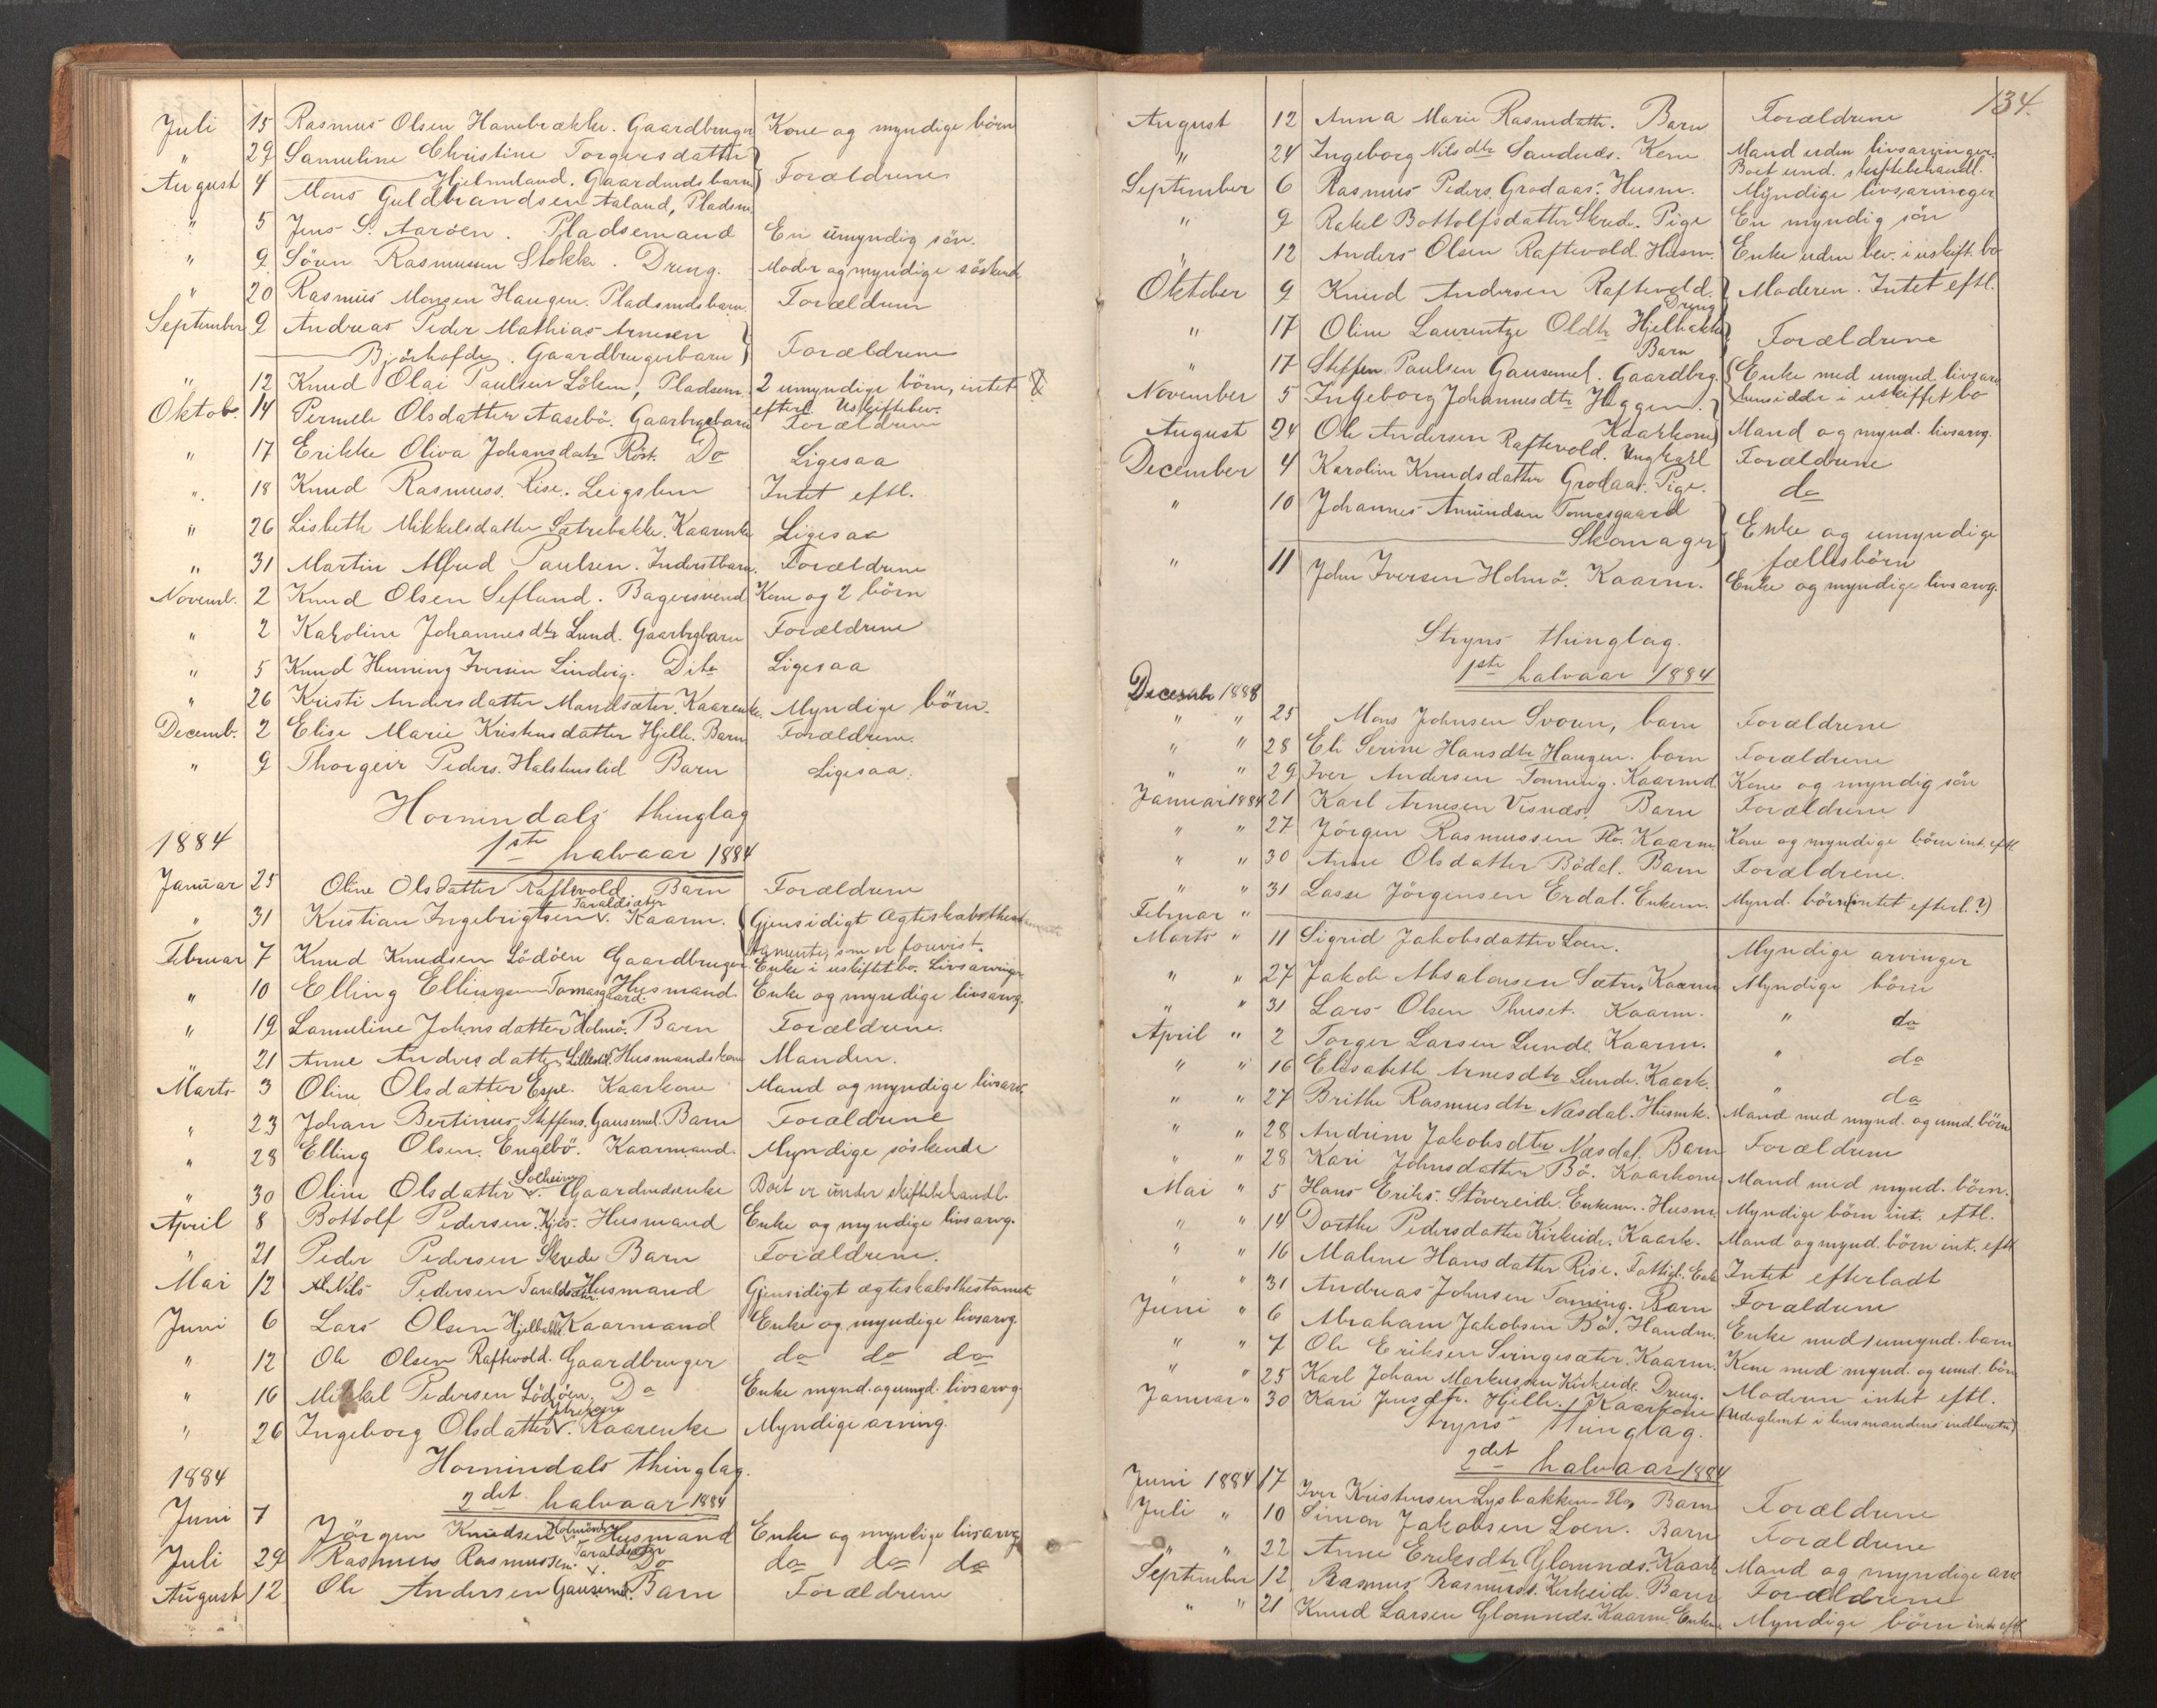 Juli 15 Rasmus Olsen Hanebrække. Gaardbruger Kone og myndige börn
" 29 Samuline Christine Torgersdatter
Hjelmeland. Gaardmdsbarn } Forældrene
August 4 Mons Guldbrandsen Aaland, Pladsm.
" 5 Jens S. Aaröen. Pladsemand En umyndig sön.
" 9 Sören Rasmussen Stokke. Dreng. Moder og myndige söskende
" 20 Rasmus Monsen Haugen. Pladsmdsbarn Forældrene
September 9 Andreas Peder Mathias Arnesen
Björhofde. Gaardbrugerbarn } Forældrene
" 12 Knud Olai Paulsen Löken, Pladsem. 2 umyndige börn, intet
efterl. Uskiftebev.
Oktob. 14 Pernele Olsdatter Aasebö. Gaarbrgebarn Forældrene
" 17 Erikke Oliva Johansdatr Röst. Do Ligesaa
" 18 Knud Rasmuss. Rise. Leigslem Intet eftl.
" 26 Lisbeth Mikkelsdatter Sætrebakke. Kaarenke Ligesaa
" 31 Martin Alfred Paulsen. Inderstbarn. Forældrene
Novemb. 2 Knud Olsen Sefland. Bagersvend Kone og 2 börn
" 2 Karoline Johannesdtr Lund. Gaarbrgbarn Forældrene
" 5 Knud Henning Iversen Lindvig. Dito Ligesaa
" 26 Kristi Andersdatter Mandsæter. Kaarenke. Myndige börn.
Decemb. 2 Elise Marie Kristensdatter Hjelle. Barn Forældrene.
" 9 Thorgeir Peders. Halstenslid Barn Ligesaa.
Hornindals thinglag
1884 1ste halvaar 1884
Januar 25 Oline Olsdatter Raftevold. Barn Forældrene
" 31 Kristian Ingebrigtsen Taraldsæter. Kaarm. Gjensidigt Ægteskabsthes-
tamente, som er forevist.
Februar 7 Knud Knudsen Lödöen Gaardbruger Enke i uskiftet bo. Livsarvinger
" 10 Elling Ellingsen Tomasgaard. Husmand. Enke og myndige livsarvg.
" 19 Samuline Johnsdatter Holmö. Barn Forældrene.
" 21 Anne Andersdatter Lillestöl. Husmandskone Manden.
Marts 3 Oline Olsdatter Espe. Kaarkone Mand og myndige livsarv.
" 23 Johan Bertinus Steffens. Gausemel. Barn Forældrene
" 28 Elling Olsen. Engebö. Kaarmand. Myndige söskende
" 30 Oline Olsdatter Solheim. Gaardmdsenke Boet er under skiftebehandl.
April 8 Bottolf Pedersen. Kjös. Husmand Enke og myndige livsarvg.
" 21 Peder Pedersen Skrede Barn Forældrene.
Mai 12 Nils Pedersen Taraldsæter Husmand Gjensidigt ægteskabsthestamet
Juni 6 Lars Olsen Hjelbakke Kaarmand Enke og myndige livsarvg.
" 12 Ole Olsen Raftevold. Gaardbruger do do do
" 16 Mikkel Pedersen Lödöen. Do Enke mynd. og umyd. livsarvg.
" 26 Ingeborg Olsdatter. Kaarenke Myndige arving.
Hornindals thinglag.
1884 2det halvaar 1884
Juni 7 Jörgen Knudsen Husmand Enke og myndige livsarvg
Juli 29 Rasmus Rasmussen. Taraldsæter Do do do do
August 12 Ole Andersen Gausemel. Barn Forældrene
134.
August 12 Anna Marie Rasmdattr. Barn Forældrene
" 24 Ingeborg Nilsdtr Sandnæs. Kone Mand uden livsarvinger.
Boet und. skiftebehandl.
September 6 Rasmus Peders. Grodaas. Husm. Myndige livsarvinger
" 9 Rakel Bottolfsdatter Skrede. Pige En myndig sön
" 12 Anders Olsen Raftevold. Husm. Enke uden bev. i uskift. bo
Oktober 9 Knud Andersen Raftevold. Dreng } Moderen. Intet eftl.
" 17 Oline Laurentze Oldtr Hjelbakke
Barn } Forældrene
" 17 Steffen Paulsen Gausemel. Gaardbrg. Enke med umynd. livsarv
hensidder i uskiftet bo
November 5 Ingeborg Johannesdtr Heggen.
Kaarkone } Mand og mynd. livsarvg.
August 24 Ole Andersen Raftevold. Ungkarl Forældrene
December 4 Karoline Knudsdatter Grodaas. Pige. do
" 10 Johannes Amundsen Tomasgaard
Skomager } Enke og umyndige
fællesbörn
" 11 John Iversen Holmö. Kaarm. Enke og myndige livsarvg.
Stryns thinglag.
1ste halvaar 1884
Decemb 1883
" " 25 Mons Johnsen Svoren, barn Forældrene
" " 28 Eli Serine Hansdtr Haugen. barn Forældrene
" " 29 Iver Andersen Tonning. Kaarmd Kone og myndig sön
Januar 1884 21 Karl Arnesen Visnæs. Barn Forældrene
" " 27 Jörgen Rasmussen Flo. Kaarm Kone og myndige börn int. eftl.
" " 30 Anne Olsdatter Bödal. Barn Forældrene.
" " 31 Lasse Jörgensen Erdal. Enkem. Mynd. börn (intet efterl.?)
Februar "
Marts " 11 Sigrid Jakobsdatter Loen. Myndige arvinger
" " 27 Jakob Absalonsen Sætre. Kaarm Myndige börn
" " 31 Lars Olsen Thuset. Kaarm. " do
April " 2 Torger Larsen Lunde. Kaarm. " do
" " 16 Elisabeth Arnesdtr Lunde. Kaark. " do
" " 27 Brithe Rasmusdtr Næsdal. Husmk. Mand med mynd. og umd. börn
" " 28 Andrine Jakobsdtr Næsdal. Barn Forældrene
" " 28 Kari Johnsdatter Bö. Kaarkone Mand med mynd. börn.
Mai " 5 Hans Eriks. Stövereide. Enkem. Husm. Myndige börn int. eftl.
" " 14 Dorthe Pedersdatter Kirkeide. Kaark. Mand og mynd. börn int. eftl
" " 16 Malene Hansdatter Rise. Fattigl. Enke Intet efterladt
" " 31 Andreas Johnsen Tonning. Barn Forældrene
Juni " 6 Abraham Jakobsen Bö. Handm. Enke med 1 umynd. barn
" " 7 Ole Eriksen Svingesæter. Kaarm. Kone med mynd. og umd. börn
" " 25 Karl Johan Markussen Kirkeide. Dreng. Moderen intet eftl.
Januar " 30 Kari Jensdtr. Hjelle. Kaarkone (Udeglemt i lensmandens indberetn)
Stryns thinglag.
2det halvaar 1884
Juni 1884 17 Iver Kristensen Lysbakken Flo, Barn Forældrene
Juli " 10 Simon Jakobsen Loen. Barn Forældrene
" " 22 Anne Eriksdtr Glomnæs. Kaark Mand og myndige arv
September 12 Rasmus Rasmuss. Kirkeide. Barn Forældrene
" " 21 Knud Larsen Glomnæs. Kaarm. Enkem Myndige börn int. eftl.